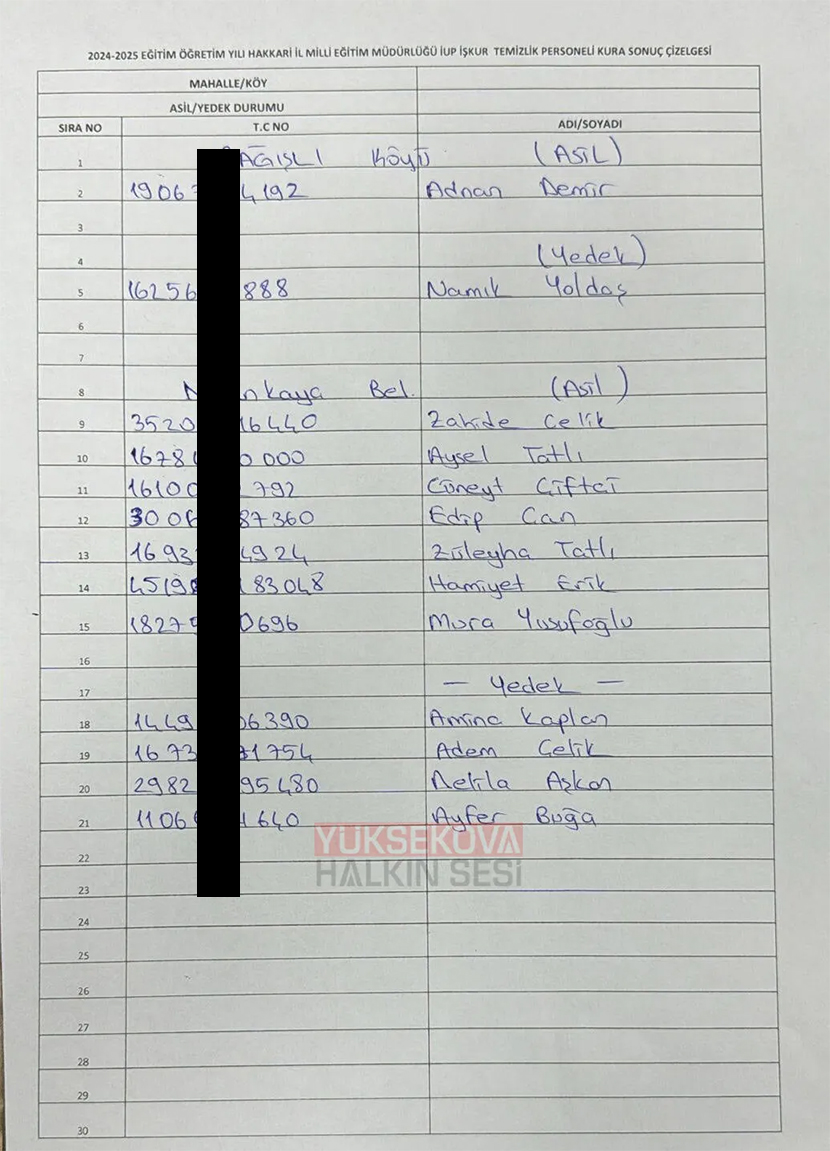 2024-2025 EĞİTİM ÖĞRETİM YILI HAKKARİ İL MİLLİ EĞİTİM MÜDÜRLÜĞÜ İUP İŞKUR TEMİZLİK PERSONELİ KURA SONUÇ ÇİZELGESİ
MAHALLE/KÖY
ASİL/YEDEK DURUMU
SIRA NO T.C NO ADI/SOYADI
1 AĞIŞLI KÖYÜ (ASİL)
2 1906 4192 Adnan Demir
3
4 (Yedek)
5 16256 888 Namık Yoldaş
6
7
8 nkaya Bel. (Asil)
9 3520 16440 Zahide Çelik
10 1678 0000 Aysel Tatlı
11 1610 792 Cüneyt Çiftçi
12 3006 87360 Edip Can
13 1693 4924 Züleyha Tatlı
14 4519 83048 Hamiyet Erik
15 1827 0696 Mura Yusufoğlu
16
17 — Yedek —
18 1449 06390 Amina Kaplan
19 1673 1754 Adem Çelik
20 2982 95480 Aşkan
21 1106 1640 Ayfer Buğa
YÜKSEKOVA
22
HALKIN SESİ
23
24
25
26
27
28
29
30